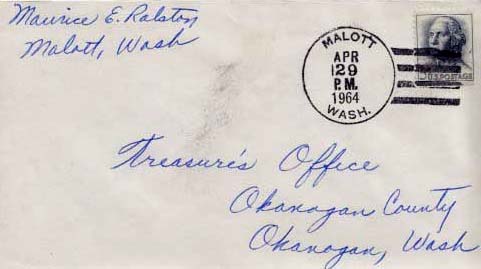 Maurice E. Ralston
Malott, Wash
MALOTT
APR
29
P.M.
1964
WASH.
U.S. POSTAGE
Treasure's Office
Okanogan County
Okanogan, Wash